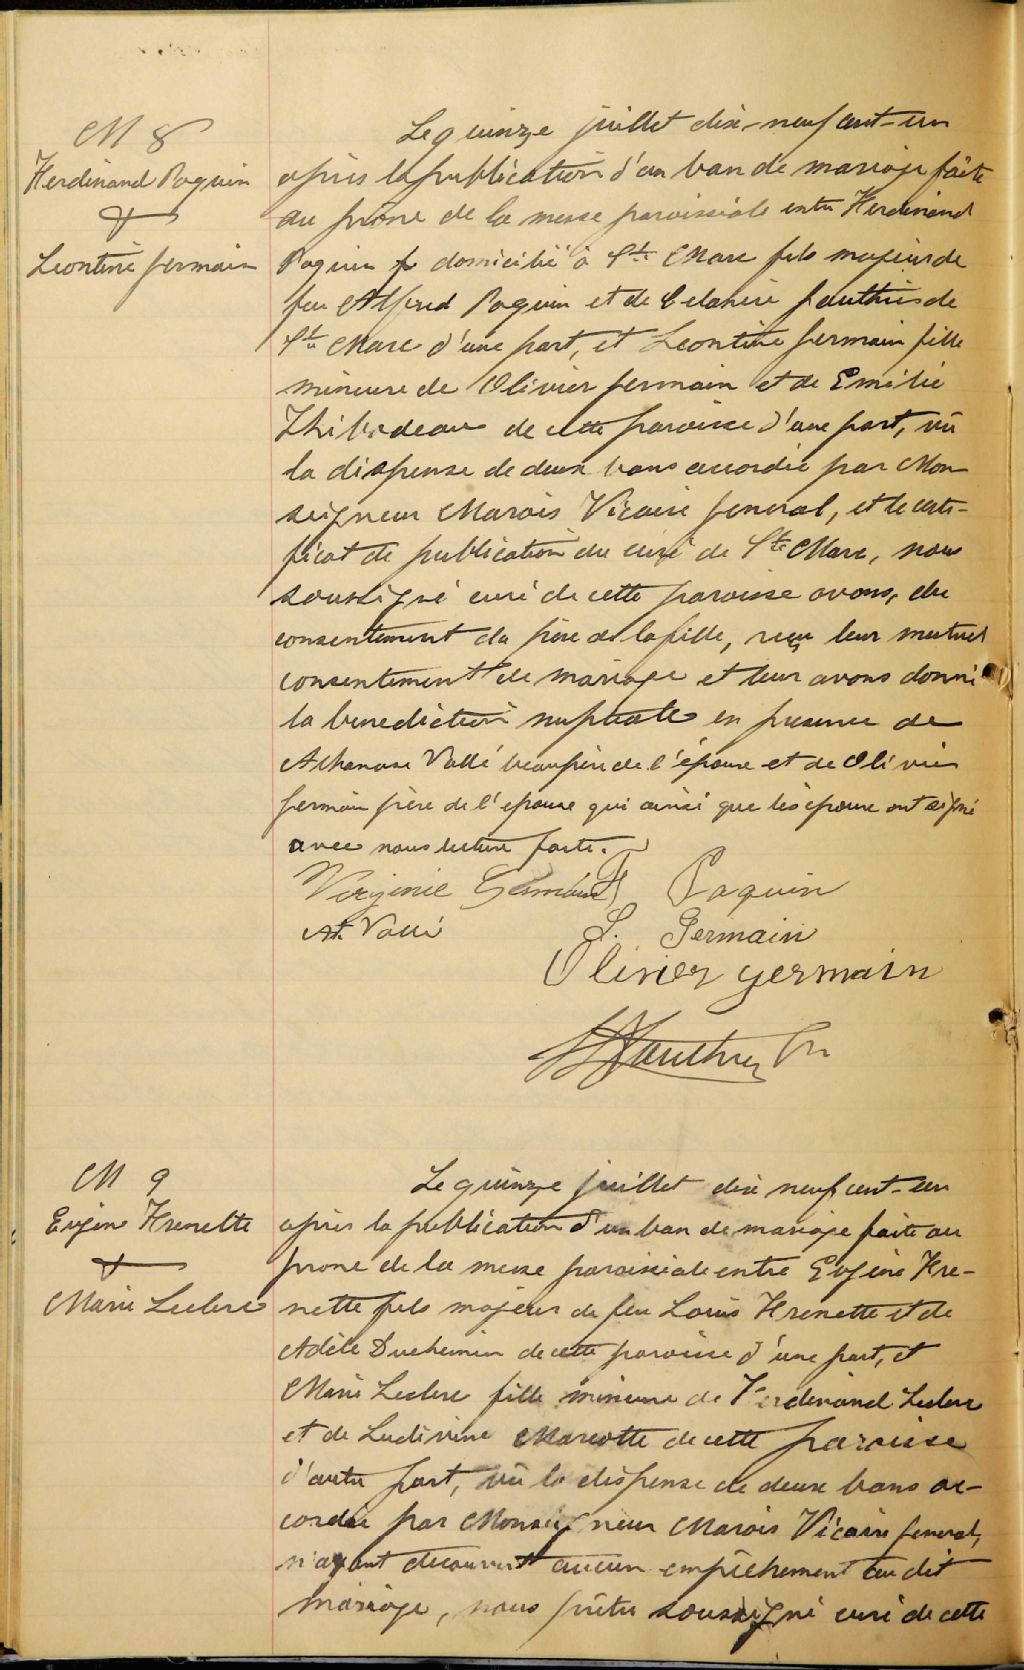 M 8
Ferdinand Paquin
&
Leontine Germain
Le quinze juillet dix-neuf cent-un
après la publication d'un ban de mariage faite
au prône de la messe paroissiale entre Ferdinand
Paquin domicilié à St. Marc fils majeur de
feu Alfred Paquin et de Celanire Gauthier de
St. Marc d'une part, et Leontine Germain fille
mineure de Olivier Germain et de Emilie
Thibodeau de cette paroisse d'une part, vû
la dispense de deux bans accordée par Mon-
seigneur Marois Vicaire General, et le certi-
ficat de publication du curé de St. Marc, nous
soussigné curé de cette paroisse avons, du
consentement du père de la fille, reçu leur mutuel
consentement de mariage et leur avons donné
la benediction nuptiale en presence de
Athanase Vallé beaupère de l'époux et de Olivier
Germain père de l'epouse qui ainsi que les epoux ont signé
avec nous lecture faite.
Virginie Germain F Paquin
At. Vallé L. Germain
Olivier germain
Gauthier Ptr
M 9
Eugène Frenette
&
Marie Leclerc
Le quinze juillet dix neuf cent-un
après la publication d'un ban de mariage faite au
prone de la messe paroissiale entre Eugène Fre-
nette fils majeur de feu Louis Frenette et de
Adèle Duchemin de cette paroisse d'une part, et
Marie Leclerc fille mineure de Ferdinand Leclerc
et de Ludivine Marcotte de cette paroisse
d'autre part, vû la dispense de deux bans ac-
cordée par Monseigneur Marois Vicaire General,
n'ayant decouvert aucun empêchement au dit
mariage, nous prêtre soussigné curé de cette